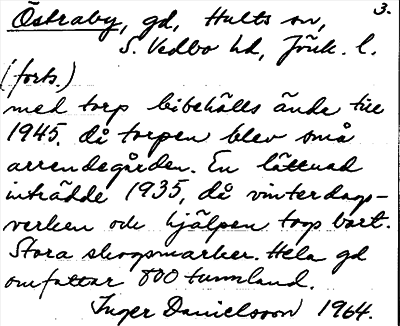 Östraby, gd, Hults sn, 3.
S. Vedbo hd, Jönk. l.
(forts.)
med torp bibehålls ände till
1945, då torpen blev små
arrendegården. En lättnad
inträdde 1935, då vinterdags-
verken och hjälpen togs bort.
Stora skogsmarker. Hela gd
omfattar 800 tunnland.
Inger Danielsson 1964.